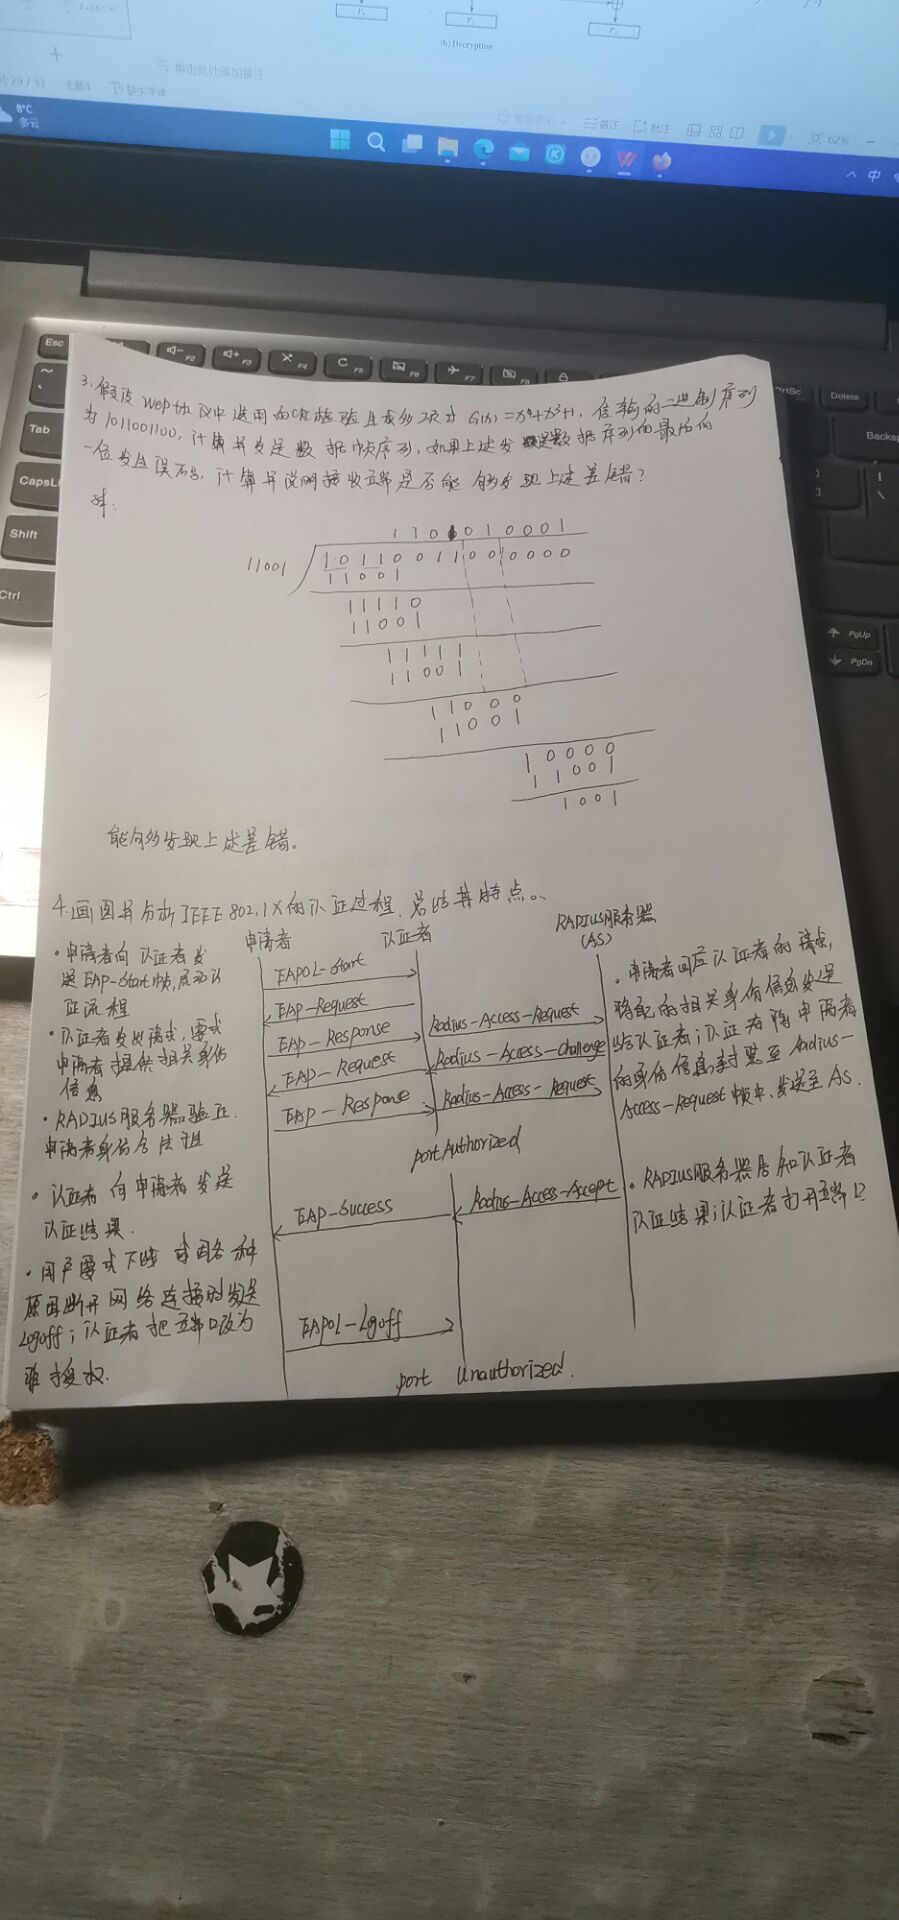 (b) Decryption
单击此处添加备注
备注
批注
62%
8°C
多云
中
Esc
F2
F3
F4
F5
F6
F7
F8
PrtSc
Delete
Tab
Backsp
CapsL
Shift
Ctrl
PgUp
PgDn
3.假设Wep协议中选用的CRC检验生成多项式为 G(x) = x⁴+x³+1, 传输的二进制序列
为1011001100, 计算并发送数据帧序列, 如果上述发送数据序列的最后的
一位发生误码, 计算并说明接收端是否能够发现上述差错?
1101010001
11001
10110011000000
11001
11110
11001
11111
11001
11000
11001
10000
11001
1001
能够发现上述差错。
4.画图并分析IEEE 802.1X的认证过程, 总结其特点。
申请者
认证者
RADIUS服务器
(AS)
· 申请者向认证者发
送EAP-Start帧,启动认
证流程
· 认证者发出请求, 要求
申请者提供相关身份
信息
· RADIUS服务器验证
申请者身份合法性
· 认证者向申请者发送
认证结果.
· 用户要求下线或因各种
原因断开网络连接时发送
Logoff; 认证者把端口改为
非授权.
EAPOL-Start
EAP-Request
EAP-Response
Radius-Access-Request
EAP-Request
Radius-Access-Challenge
EAP-Response
Radius-Access-Request
port Authorized
EAP-Success
Radius-Access-Accept
EAPOL-Logoff
port Unauthorized.
· 申请者回应认证者的请求,
将自己的相关身份信息发送
给认证者; 认证者将申请者
的身份信息封装至Radius-
Access-Request帧中, 发送至AS.
· RADIUS服务器告知认证者
认证结果; 认证者打开端口